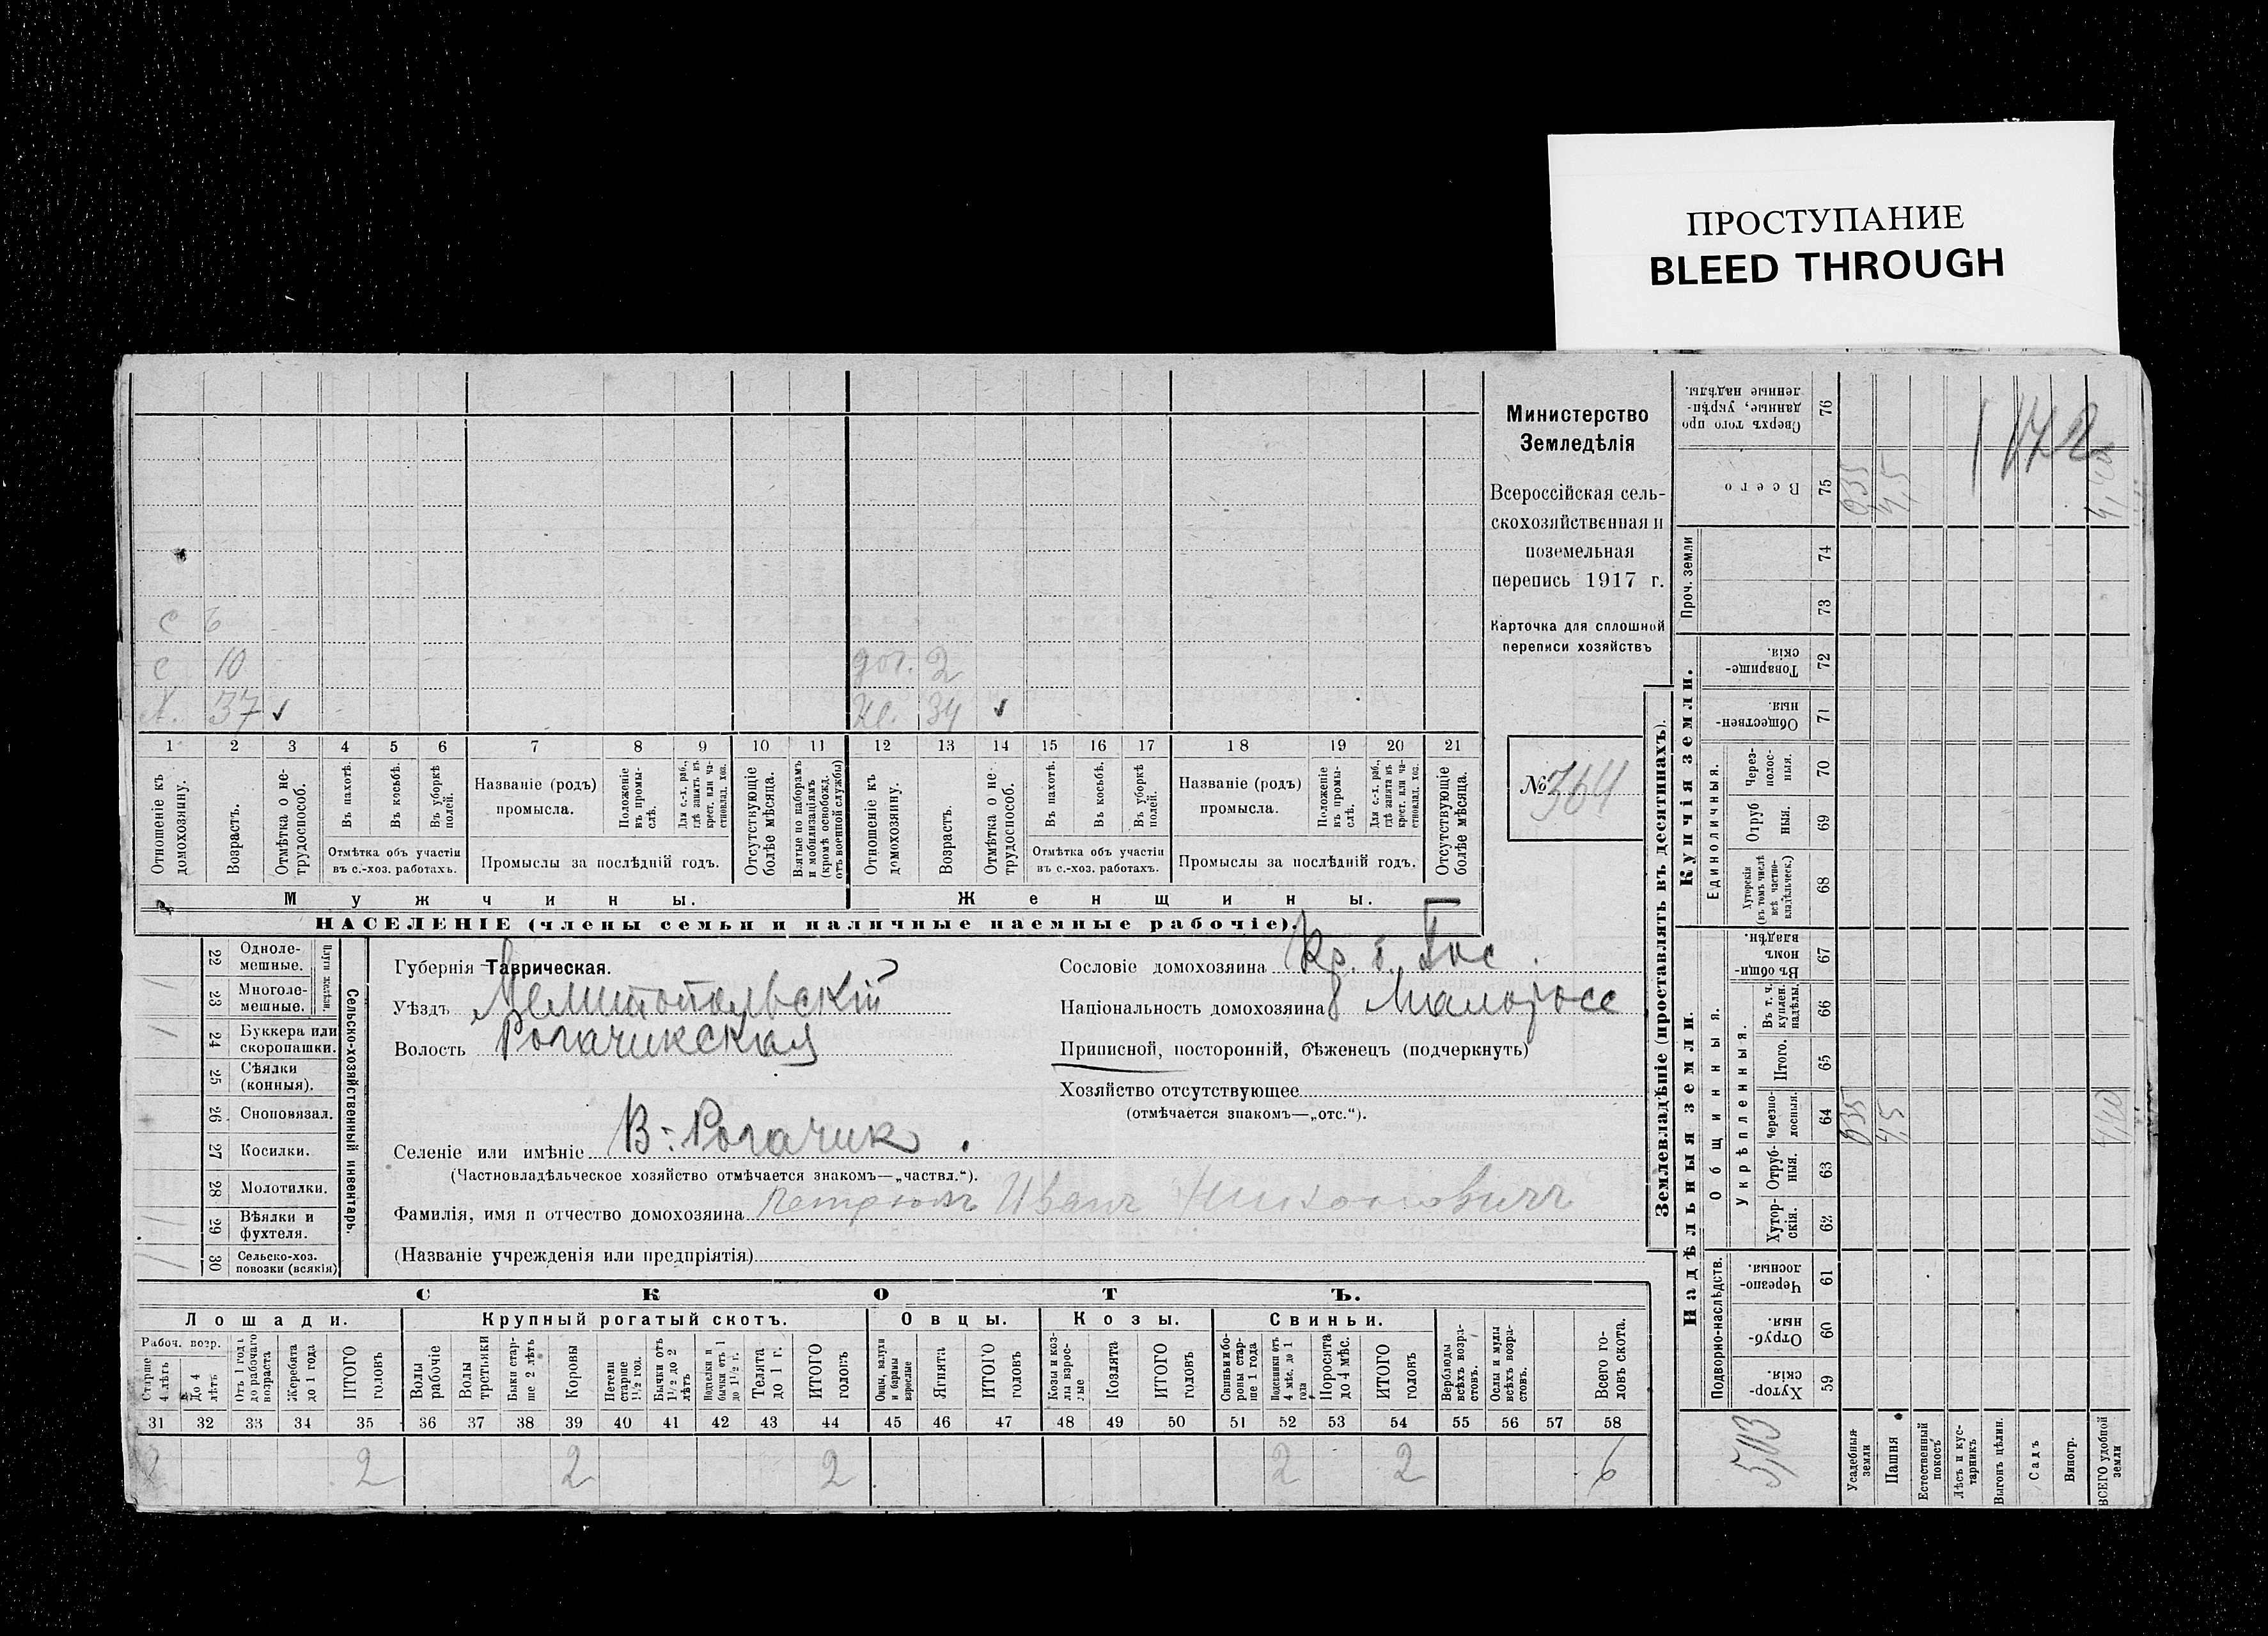 ПРОСТУПАНИЕ
BLEED THROUGH
Министерство
Земледѣлія
Всероссійская сель-
скохозяйственная и
поземельная
перепись 1917 г.
Карточка для сплошной
переписи хозяйствъ
№ 364
с 6
с 10
37 ✓
доч. 2
34 ✓
1 2 3 4 5 6 7 8 9 10 11 12 13 14 15 16 17 18 19 20 21
Отношеніе къ домохозяину.
Возрастъ.
Отмѣтка о не-трудоспособ.
Въ пахотѣ.
Въ косьбѣ.
Въ уборкѣ полей.
Отмѣтка объ участіи
въ с.-хоз. работахъ.
Названіе (родъ)
промысла.
Положеніе въ промы-слѣ.
Для с.-х. раб., гдѣ занятъ въ крест. или ча-стновлад. хоз.
Промыслы за послѣдній годъ.
Отсутствующіе болѣе мѣсяца.
Взятые по наборамъ и мобилизаціямъ (кромѣ освобожд. отъ военной службы)
Отношеніе къ домохозяину.
Возрастъ.
Отмѣтка о не-трудоспособ.
Въ пахотѣ.
Въ косьбѣ.
Въ уборкѣ полей.
Отмѣтка объ участіи
въ с.-хоз. работахъ.
Названіе (родъ)
промысла.
Положеніе въ промы-слѣ.
Для с.-х. раб., гдѣ занята въ крест. или ча-стновлад. хоз.
Промыслы за послѣдній годъ.
Отсутствующіе болѣе мѣсяца.
Мужчины.
Женщины.
НАСЕЛЕНІЕ (члены семьи и наличные наемные рабочіе).
22 Одноле-мешные.
23 Многоле-мешные.
24 Буккера или скоропашки.
25 Сѣялки (конныя).
26 Сноповязал.
27 Косилки.
28 Молотилки.
29 Вѣялки и фухтеля.
30 Сельско-хоз. повозки (всякія)
Сельско-хозяйственный инвентарь.
Губернія Таврическая.
Уѣздъ Мелитопольскій
Волость Рогачикская
Селеніе или имѣніе В.-Рогачик.
(Частновладѣльческое хозяйство отмѣчается знакомъ—„частвл.“).
Фамилія, имя и отчество домохозяина Иванъ
(Названіе учрежденія или предпріятія)
Сословіе домохозяина Кр. б. Гос.
Національность домохозяина Малоросс
Приписной, посторонній, бѣженецъ (подчеркнуть)
Хозяйство отсутствующее
(отмѣчается знакомъ—„отс.“).
СКОТЪ.
Лошади. Крупный рогатый скотъ. Овцы. Козы. Свиньи.
Рабоч. возр.
Старше 4 лѣтъ
До 4 лѣтъ
Отъ 1 года до рабочаго возраста
Жеребята до 1 года
ИТОГО головъ
Волы рабочіе
Волы третьяки
Быки стар-ше 2 лѣтъ
Коровы
Нетели старше 1½ год.
Бычки отъ 1½ до 2 лѣтъ
Телята до 1 г.
ИТОГО головъ
Овцы, валухи и бараны взрослые
Ягнята
ИТОГО головъ
Козы и коз-лы взрос-лые
Козлята
ИТОГО головъ
Свиньи и бо-ровы стар-ше 1 года
Поросята до 4 мѣс.
ИТОГО головъ
Верблюды всѣхъ возра-стовъ.
Ослы и мулы всѣхъ возра-стовъ.
Всего го-ловъ скота.
31 32 33 34 35 36 37 38 39 40 41 42 43 44 45 46 47 48 49 50 51 52 53 54 55 56 57 58
2 2 2 2 2 2 6
Землевладѣніе (проставлять въ десятинахъ).
Надѣльныя земли.
Купчія земли.
Проч. земли
Подворно-наслѣдств.
Общинныя.
Укрѣпленныя.
Единоличныя.
59 Хутор-скія.
60 Отруб-ныя.
61 Черезпо-лосныя.
62 Хутор-скія.
63 Отруб-ныя.
64 Черезпо-лосныя.
65 Итого.
66 Въ т. ч. куплен. надѣлы.
67 Въ общи-номъ владѣн.
68 Хуторскія (въ томъ числѣ всѣ частно-владѣльческ.)
69 Отруб ныя.
70 Через-полос-ныя.
71 Обществен-ныя.
72 Товарище-скія.
73
74
75 Всего
76 Сверхъ того про данные, укрѣп-ленные надѣлы.
Усадебныя земли
Пашня
Естественный покосъ
Лѣсъ и кус-тарникъ
Выгонъ цѣлин.
Садъ
Виногр.
ВСЕГО удобной земли
4,5
4,5